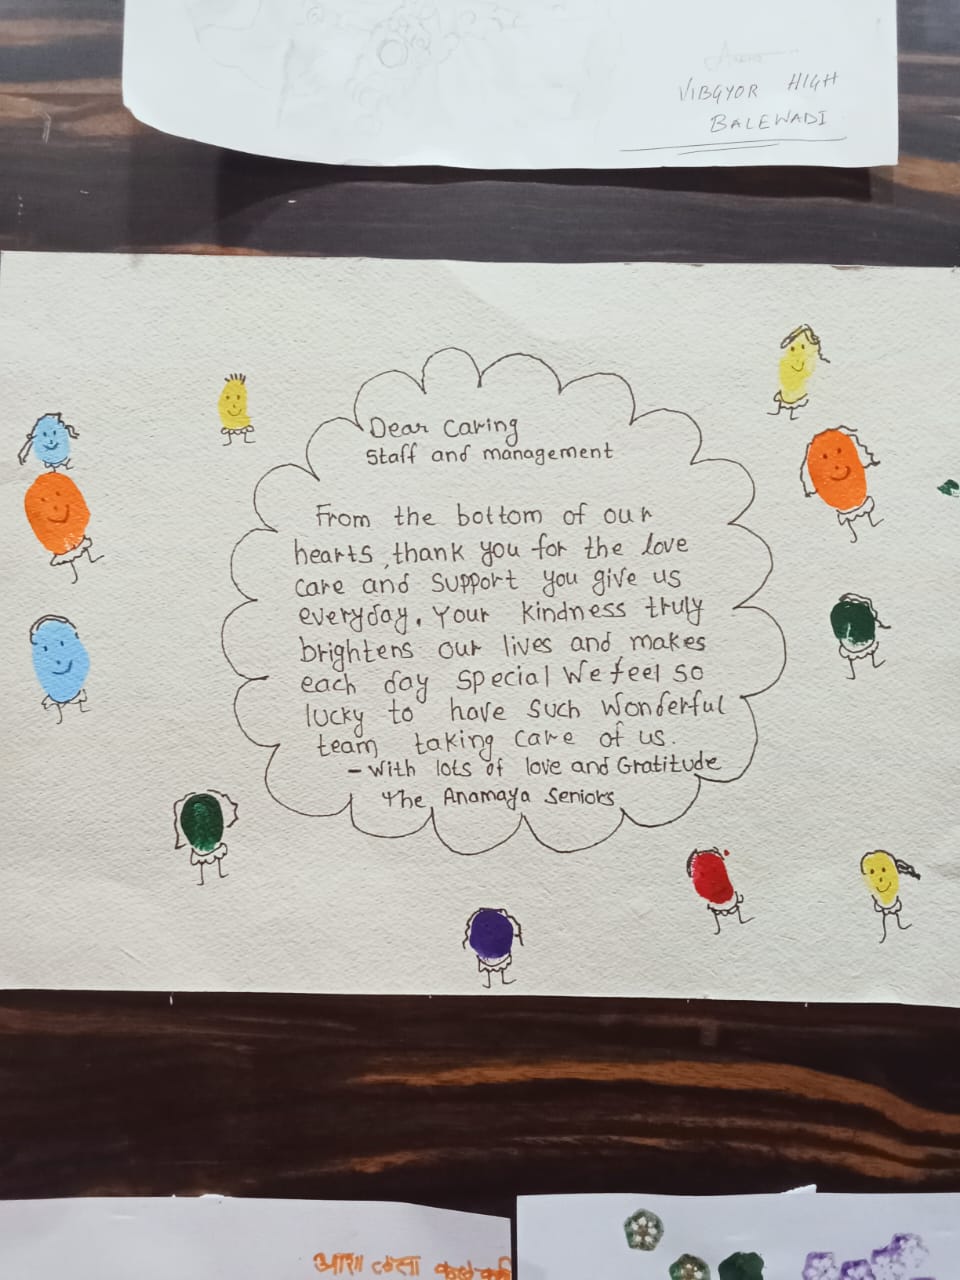 VIBGYOR HIGH
BALEWADI
Dear Caring
Staff and management
From the bottom of our
hearts, thank you for the love
care and support you give us
everyday. Your kindness truly
brightens our lives and makes
each day special We feel so
lucky to have such wonderful
team taking care of us.
- With lots of love and Gratitude
The Anamaya Seniors